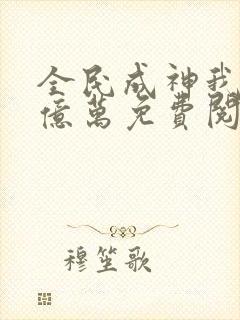 全民成神我
億萬免費閱
穆笙歌